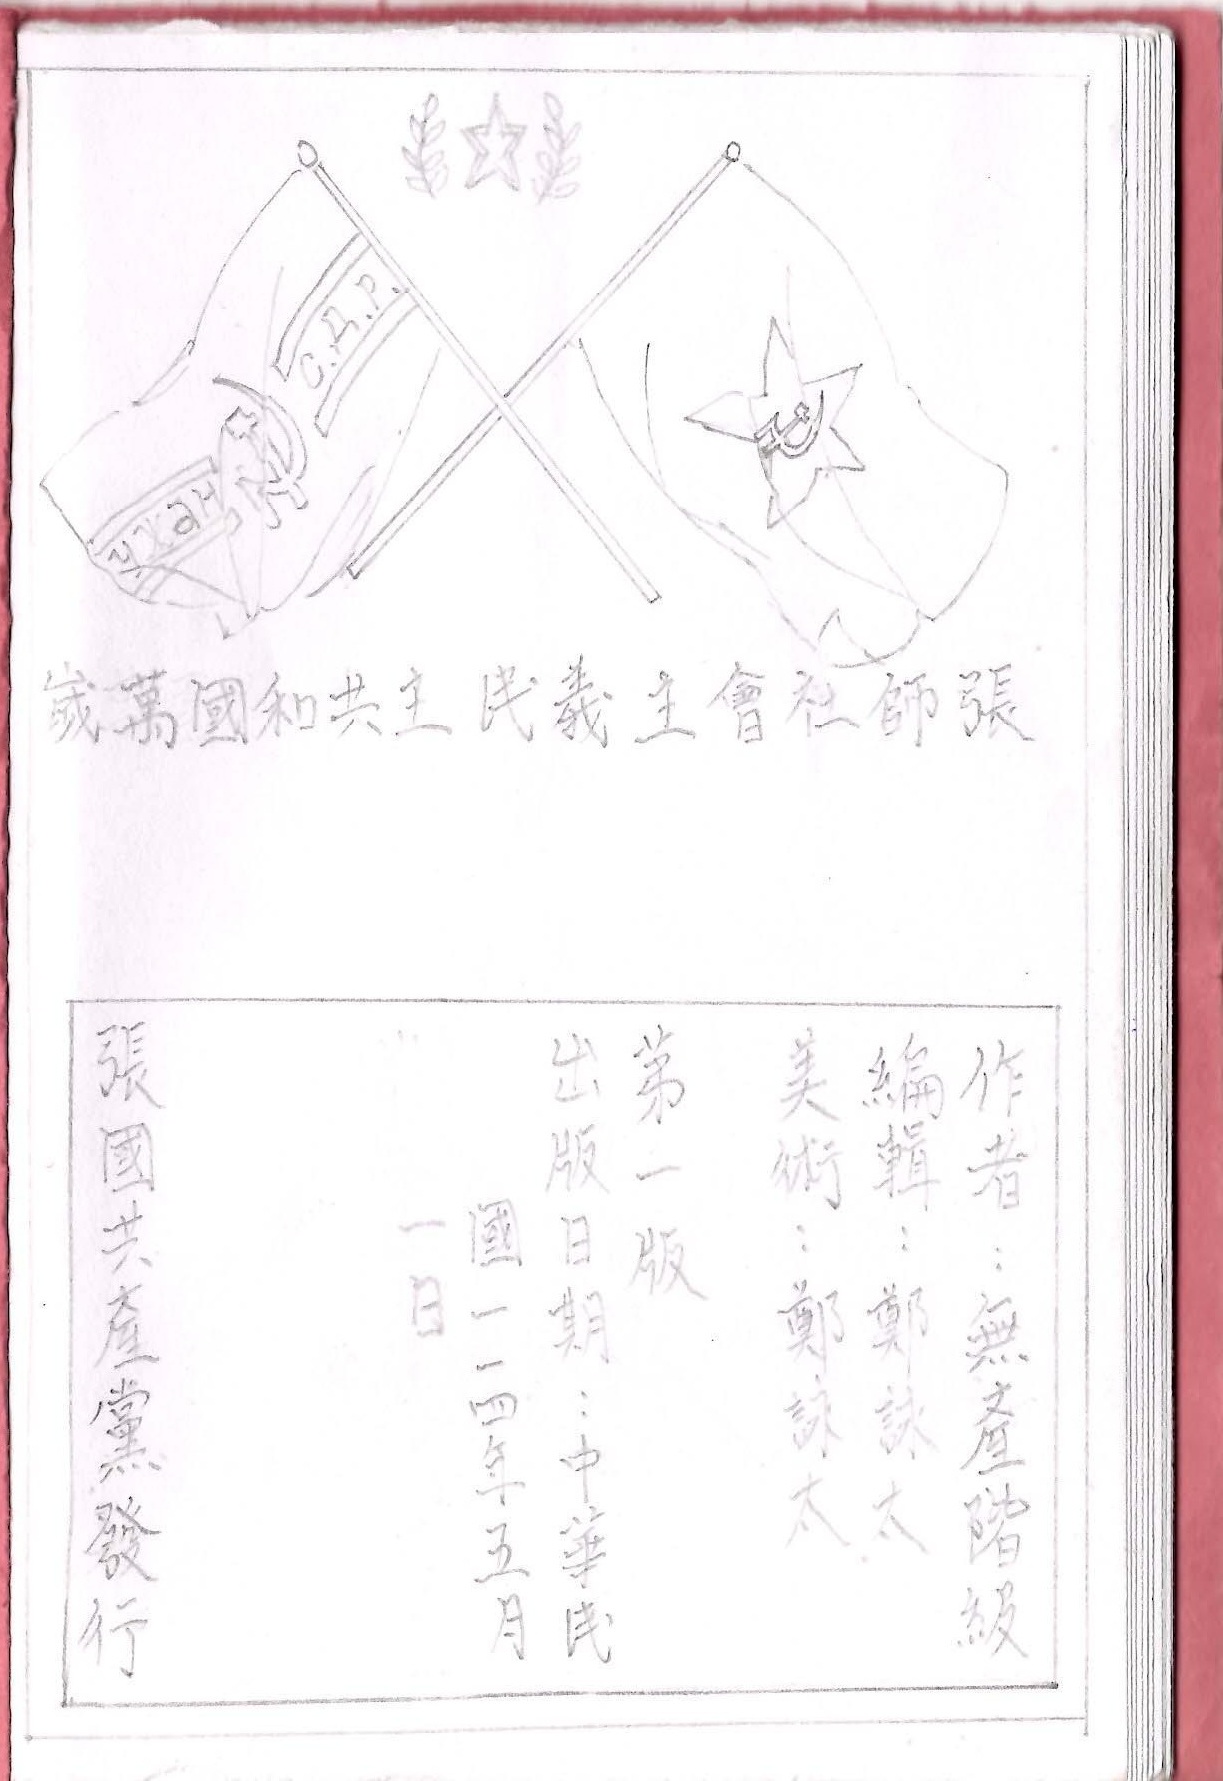 С.Д.Р.
Чжан
張師社會主義民主共和國萬歲
作者：無產階級
編輯：鄭詠太
美術：鄭詠太
第一版
出版日期：中華民
國一一四年五月
一日
張國共產黨發行